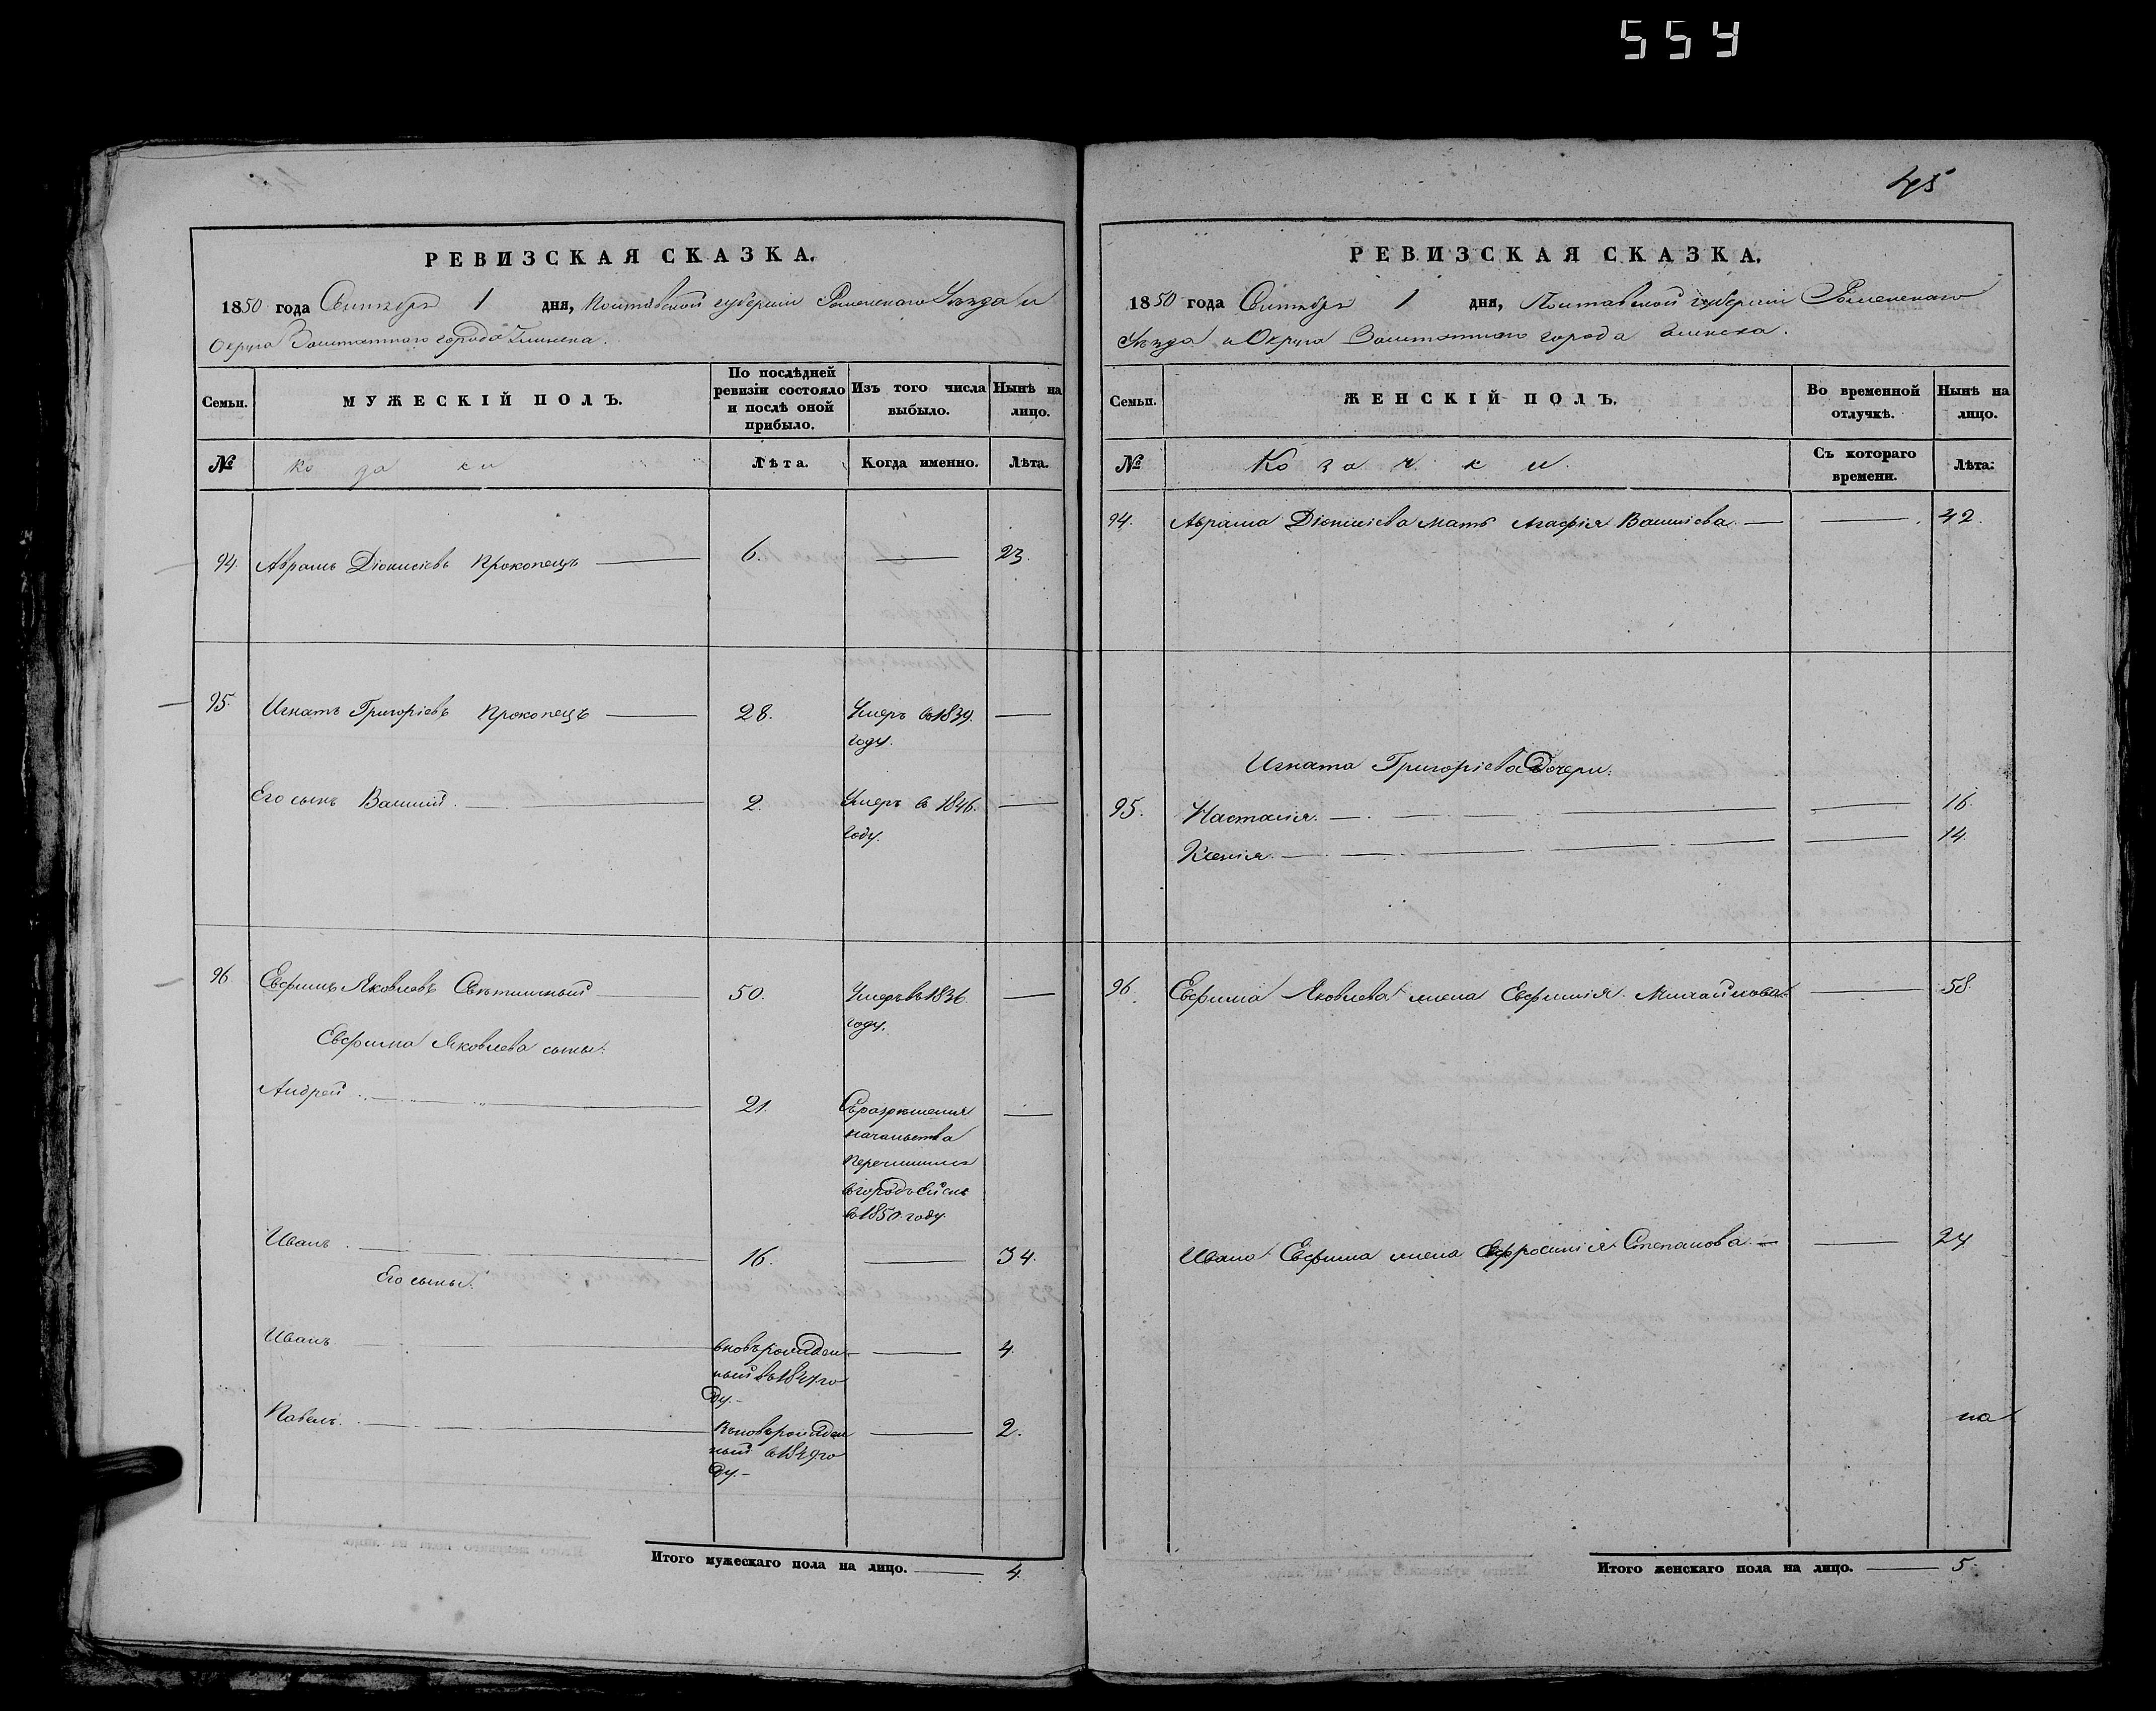 554
45
РЕВИЗСКАЯ СКАЗКА.
1850 года Сентября 1 дня, Полтавской губерніи Роменскаго Уѣзда и
Округа Заштатного города Глинска.
Семьи.
МУЖЕСКІЙ ПОЛЪ.
По послѣдней ревизіи состояло и послѣ оной прибыло.
Изъ того числа выбыло.
Нынѣ на лицо.
№
Лѣта.
Когда именно.
Лѣта.
94. Аврамъ Діонисіевъ Прокопецъ 6. 23.
95. Игнатъ Григоріевъ Прокопецъ 28. Умеръ въ 1839.
году.
Его сынъ Василий 2. Умеръ в 1846.
году.
96 Евфимъ Яковлевъ 50. Умеръ въ 1836
году.
Евфима Яковлева сыны:
Андрей 21. Съ разрешения
начальства
перечислился
в городъ Ейскъ
въ 1850 году.
Иванъ 16. 34.
Его сыны:
Иванъ вновь рожден- 4.
ный въ 1847 го
ду.-
Павелъ. Вьновь рожден 2.
ный в 1849 го
ду.-
Итого мужескаго пола на лицо. 4.
РЕВИЗСКАЯ СКАЗКА.
1850 года Сентября 1 дня, Полтавской губерніи Роменского
Уѣзда и Округа Заштатного города Глинска.
Семьи.
ЖЕНСКІЙ ПОЛЪ.
Во временной отлучкѣ.
Нынѣ на лицо.
№
Козачки.
Съ котораго времени.
Лѣта.
94. Аврама Діонисіева мать Агафія Васильева 42.
Игната Григоріева Дочери:
95. Настасія. 16.
Ксенія. 14.
96. Евфима Яковлева жена Евфимія Михайлова 58.
Ивана Евфима жена Евфросинія Степанова 24
на
Итого женскаго пола на лицо. 5.